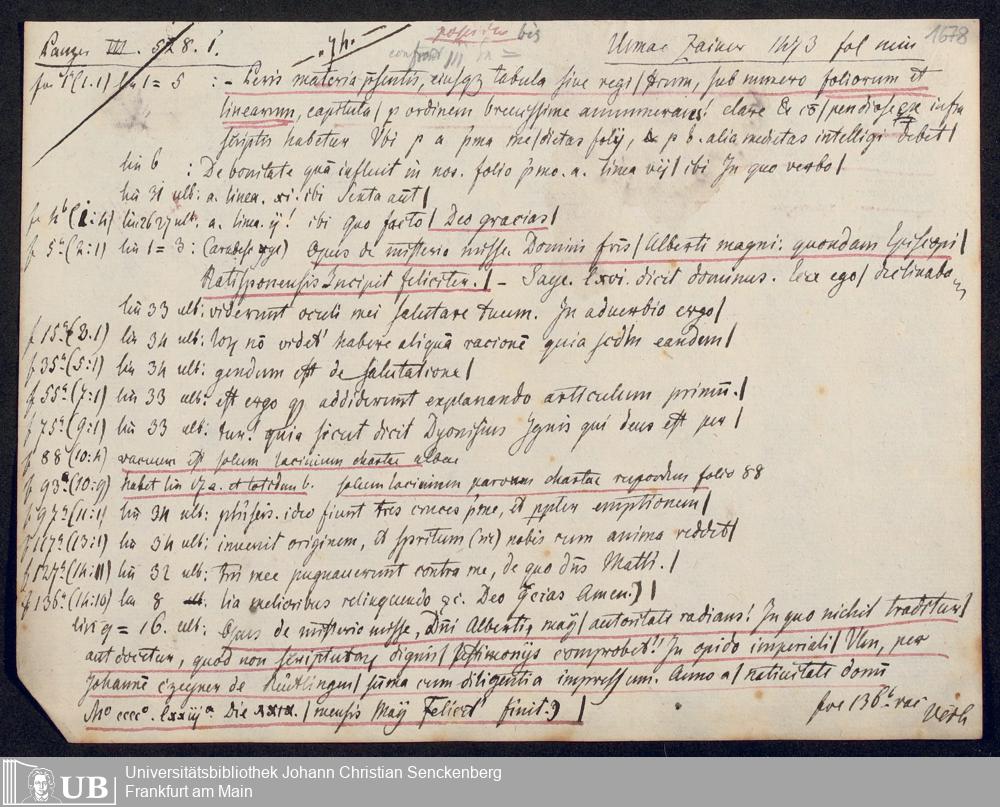 Panzer III. 528. 1. „74." possideo bis Ulmae Zainer 1473 fol min 1678
confront III
fo 1ᵃ(1.1) lin 1=5 : - Huius materia pñtis, eiusqz tabula sine regi/strum, sub numero foliorum et
linearum, capitula / p ordinem breuissime annumerans! clare & cō/pendiose infra
scriptis habetur Vbi p a pma me/dietas folij, & p b. alia medietas intelligi debet/
lin 6 : De bonitate quā influit in nos. folio pmo. a. linea vij/ ibi In quo verbo/
lin 31 ult: a. linea. xi. ibi Sexta aūt/
fo 4ᵇ(1:4) lin 26 27 ult. a. linea. ij! ibi quo facto/ Deo gracias/
f 5ᵃ(2:1) lin 1=3: Opus de misterio misse. Domini fris/ Alberti magni. quondam Episcopi/
Ratisponensis Incipit feliciter./ - Saye. lxvi. dicit dominus. ecce ego/ declinabo
lin 33 ult: viderunt oculi mei salutare tuum. In aduerbio ergo/
f 15ᵃ(3.1) lin 34 ult: nō videt' habere aliquā racionē quia scdm eandem/
f 35ᵃ(5:1) lin 34 ult: gendum est de salutatione/
f 55ᵃ(7:1) lin 33 ult: est ergo q addiderunt explanando articulum primū./
f 75ᵃ(9:1) lin 33 ult: tur! quia sicut dicit Dyonisius Ignis qui deus est per/
f 88 (10:4) vacuum est solum lacinium chartae albae
f 93ᵃ(10:9) habet lin 17 a. et totidem b. solum lacinium parvum chartae respondens folio 88
f 97ᵃ(11:1) lin 34 ult: ideo fiunt tres cruces pme, et ppter emptionem/
f 117ᵃ(13:1) lin 34 ult: inuenit originem, et spiritum (sic) nobis cum anima reddet/
f 127ᵃ(14:11) lin 32 ult: trū mee pugnauerunt contra me, de quo dūs Matth./
f 136ᵃ(14:10) lin 8 ult. lia melioribus relinquendo zc. Deo gcias Amen.)/
lin 9=16. ult: Opus de misterio misse, Dñi Alberti, may/ autoritate radians! In quo nichil traditur/
aut docetur, quod non scripturarz dignis/ testimonijs comprobet'! In opido imperiali/ Vlm, per
Johannē czeyner de Rütlingen/ sūma cum diligentia impressum. Anno a/ natiuitate domī
Mº ccccº. lxxiijº. Die xxix./ mensis Maij Felicit' finit.)/ fol 136ᵇ vac
Universitätsbibliothek Johann Christian Senckenberg
Frankfurt am Main
UB